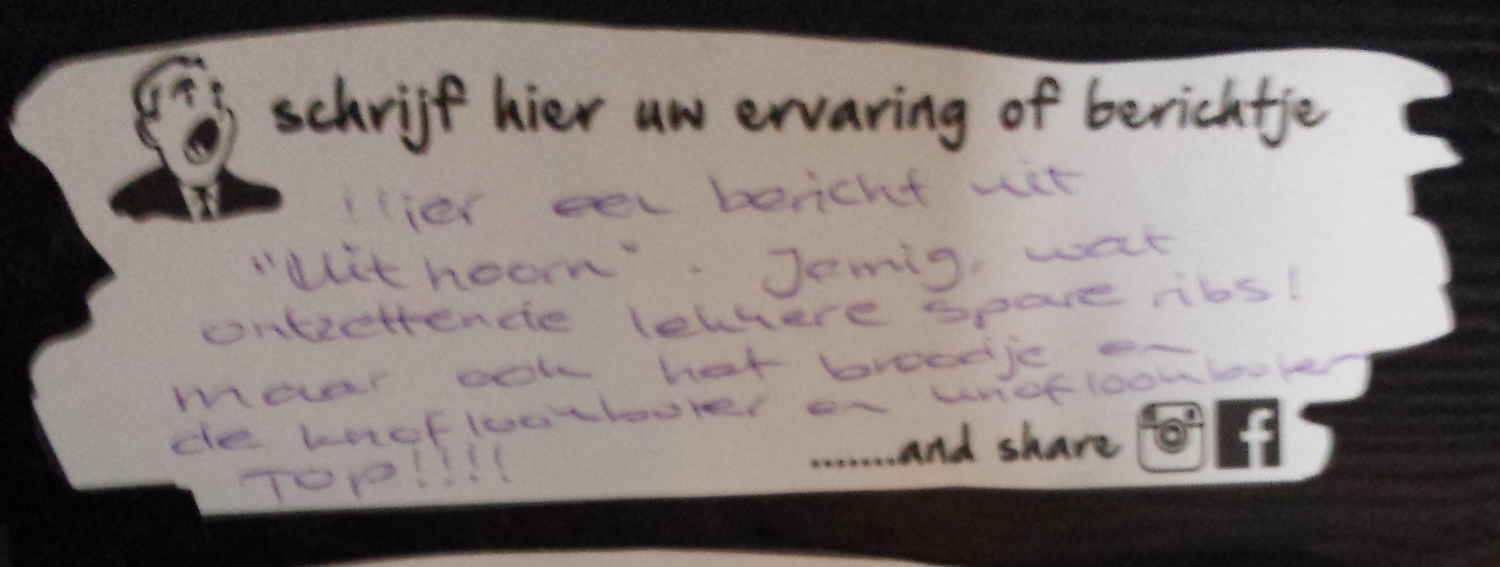 schrijf hier uw ervaring of berichtje
Hier een bericht uit
"Uithoorn". Jemig, wat
ontzettende lekkere spare ribs!
maar ook het broodje en
de knoflookboter en knoflookboter
TOP!!!!
.......and share f